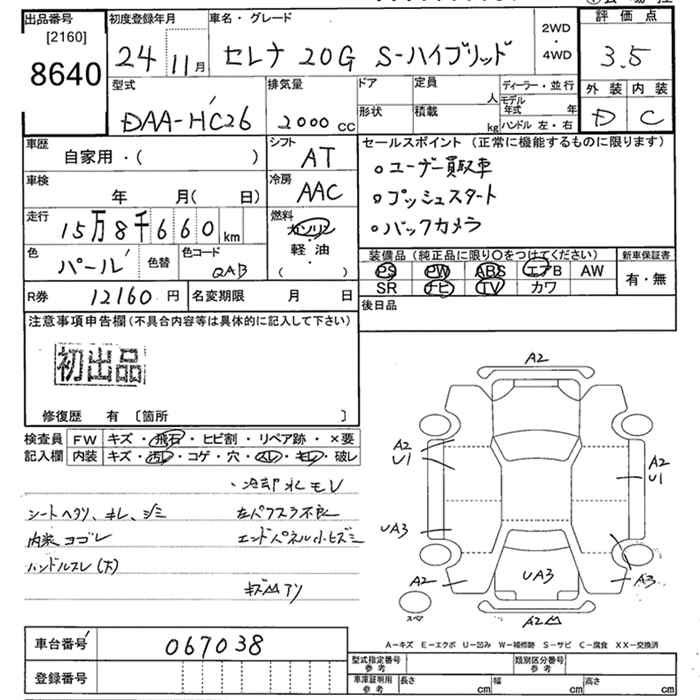 出品番号
[2160]
8640
初度登録年月
24 11月
車名・グレード
セレナ 20G S-ハイブリッド
2WD
・
4WD
評価点
3.5
外装 内装
D C
型式
DAA-HC26
排気量
2000 CC
ドア
定員
人
形状
積載
kg
ディーラー・並行
モデル年式 年
ハンドル 左・右
車歴
自家用・( )
シフト
AT
セールスポイント (正常に機能するものに限ります)
○ユーザー買取車
○プッシュスタート
○バックカメラ
車検
年 月( 日)
冷房
AAC
走行
15万8千660km
燃料
ガソリン
・
軽油
( )
色
パール
色替
色コード
QAB
装備品 (純正品に限り○をつけてください)
PS PW ABS エアB AW
SR ナビ TV カワ
新車保証書
有・無
R券 12160円
名変期限 月 日
後日品
注意事項申告欄(不具合内容等は具体的に記入して下さい)
初出品
修復歴 有 〔箇所 〕
検査員記入欄
FW キズ・飛石・ヒビ割・リペア跡・×要
内装 キズ・汚レ・コゲ・穴・スレ・キレ・破レ
・冷却水モレ
シートヘタリ、キレ、シミ 左パワスラ不良
内装ヨゴレ エンドパネル小ヒズミ
ハンドルスレ(大)
キズ凹アリ
A2
A2
U1
A2
U1
UA3
A2
UA3
A3
スペア
A2凹
A-キズ E-エクボ U-凹み W-補修跡 S-サビ C-腐食 XX-交換済
車台番号 067038
登録番号
型式指定番号 参考
類別区分番号 参考
車庫証明用 参考
長さ cm
幅 cm
高さ cm